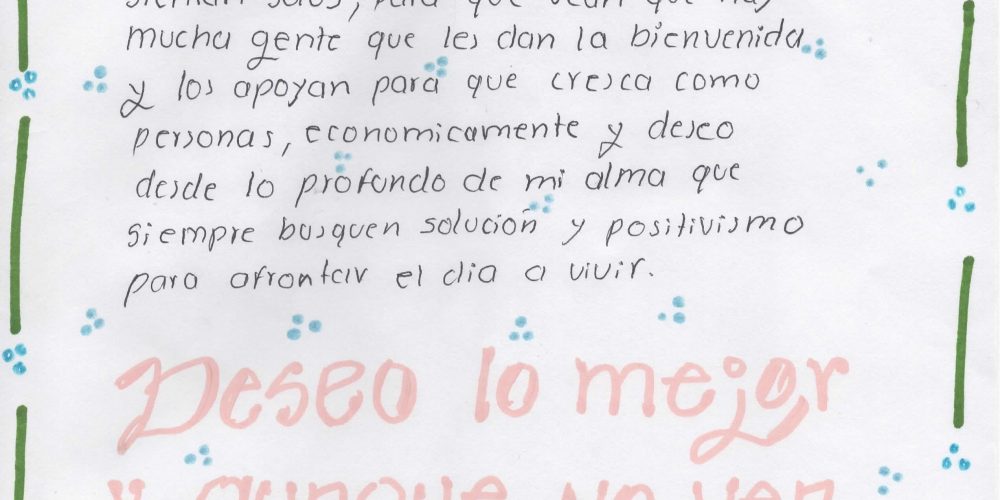 sientan solos, para que vean que hay
mucha gente que les dan la bienvenida
y los apoyan para que cresca como
personas, economicamente y deseo
desde lo profondo de mi alma que
siempre busquen solución y positivismo
para afrontar el dia a vivir.
Deseo lo mejor
y aunque no ven